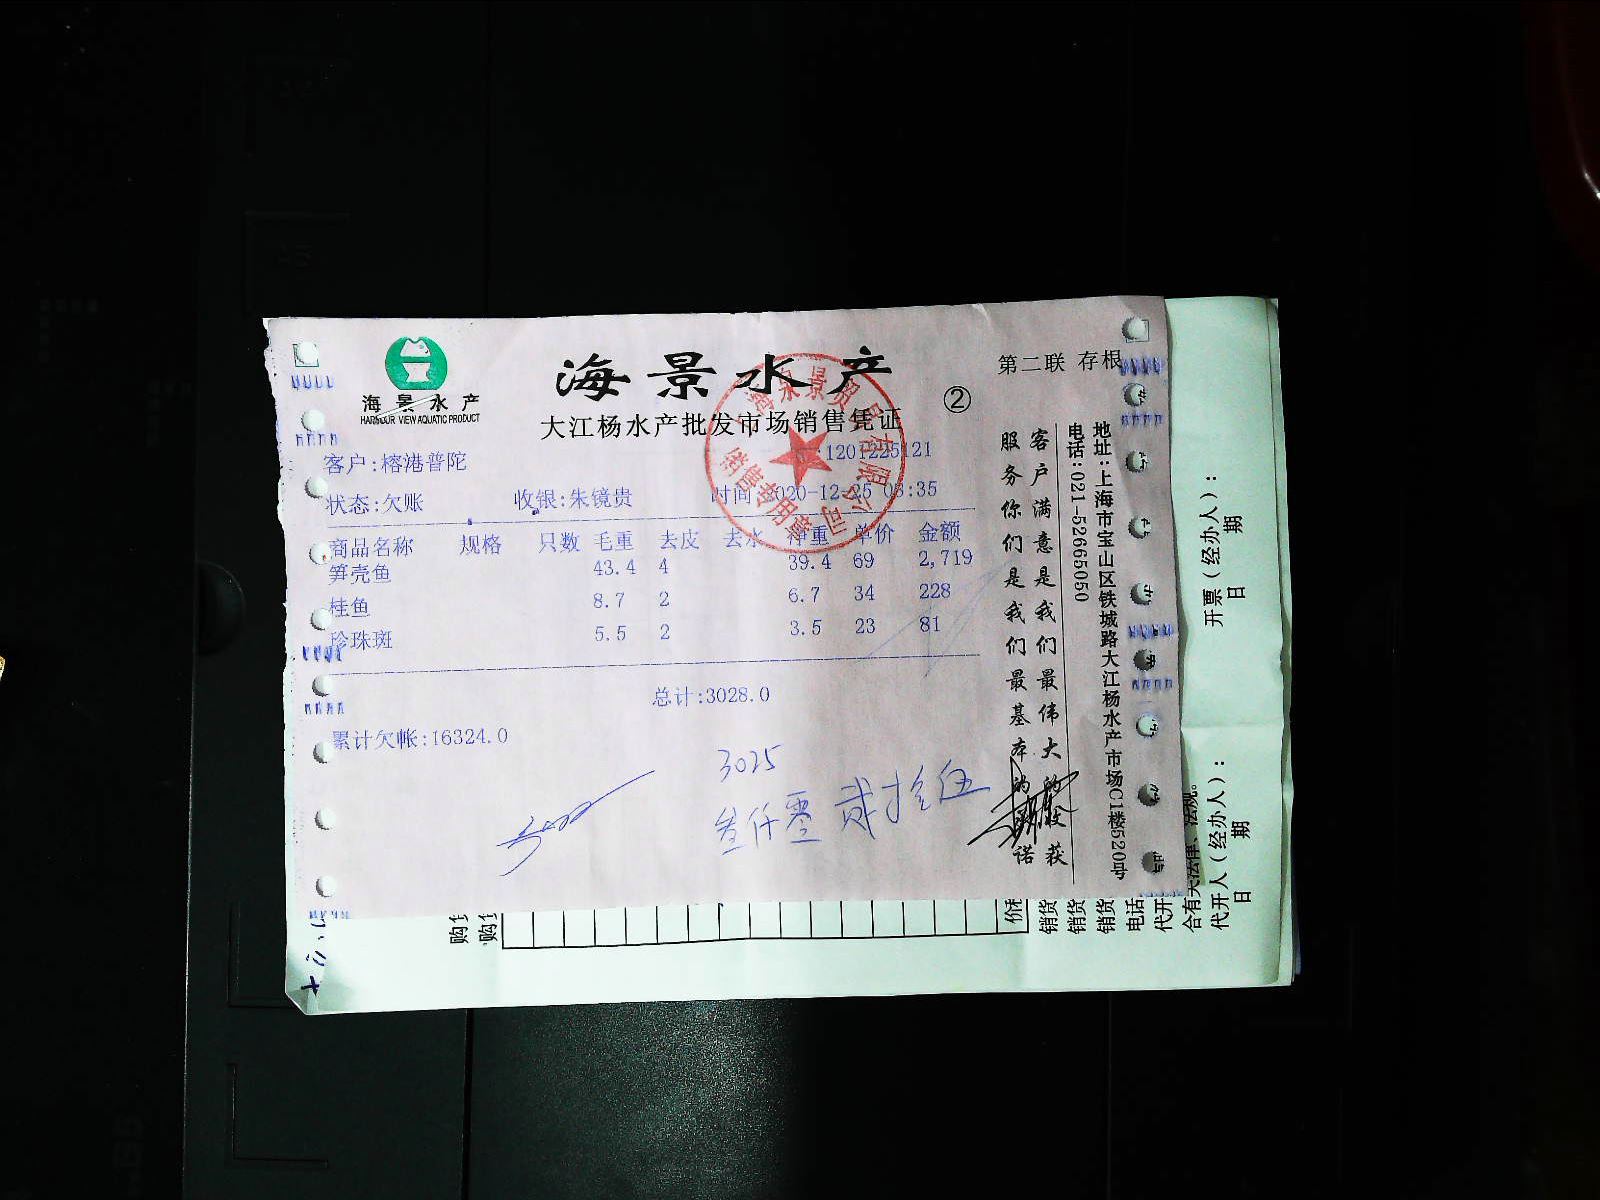 海景水产
HARBOUR VIEW AQUATIC PRODUCT
海景水产
大江杨水产批发市场销售凭证
②
第二联 存根
客户:榕港普陀
:1201225121
状态:欠账 收银:朱镜贵 时间 2020-12-25 03:35
商品名称 规格 只数 毛重 去皮 去水 净重 单价 金额
笋壳鱼 43.4 4 39.4 69 2,719
桂鱼 8.7 2 6.7 34 228
珍珠斑 5.5 2 3.5 23 81
总计:3028.0
累计欠帐:16324.0
3025
叁仟零贰拾伍
销售专用章
客户满意是我们最伟大的收获
服务你们是我们最基本的承诺
地址:上海市宝山区铁城路大江杨水产市场C1楼520号
电话:021-52665050
开票(经办人):
日 期
代开人(经办人):
日 期
含有关法律、法规。
代开
电话
销货
销货
销货
价税
购
购